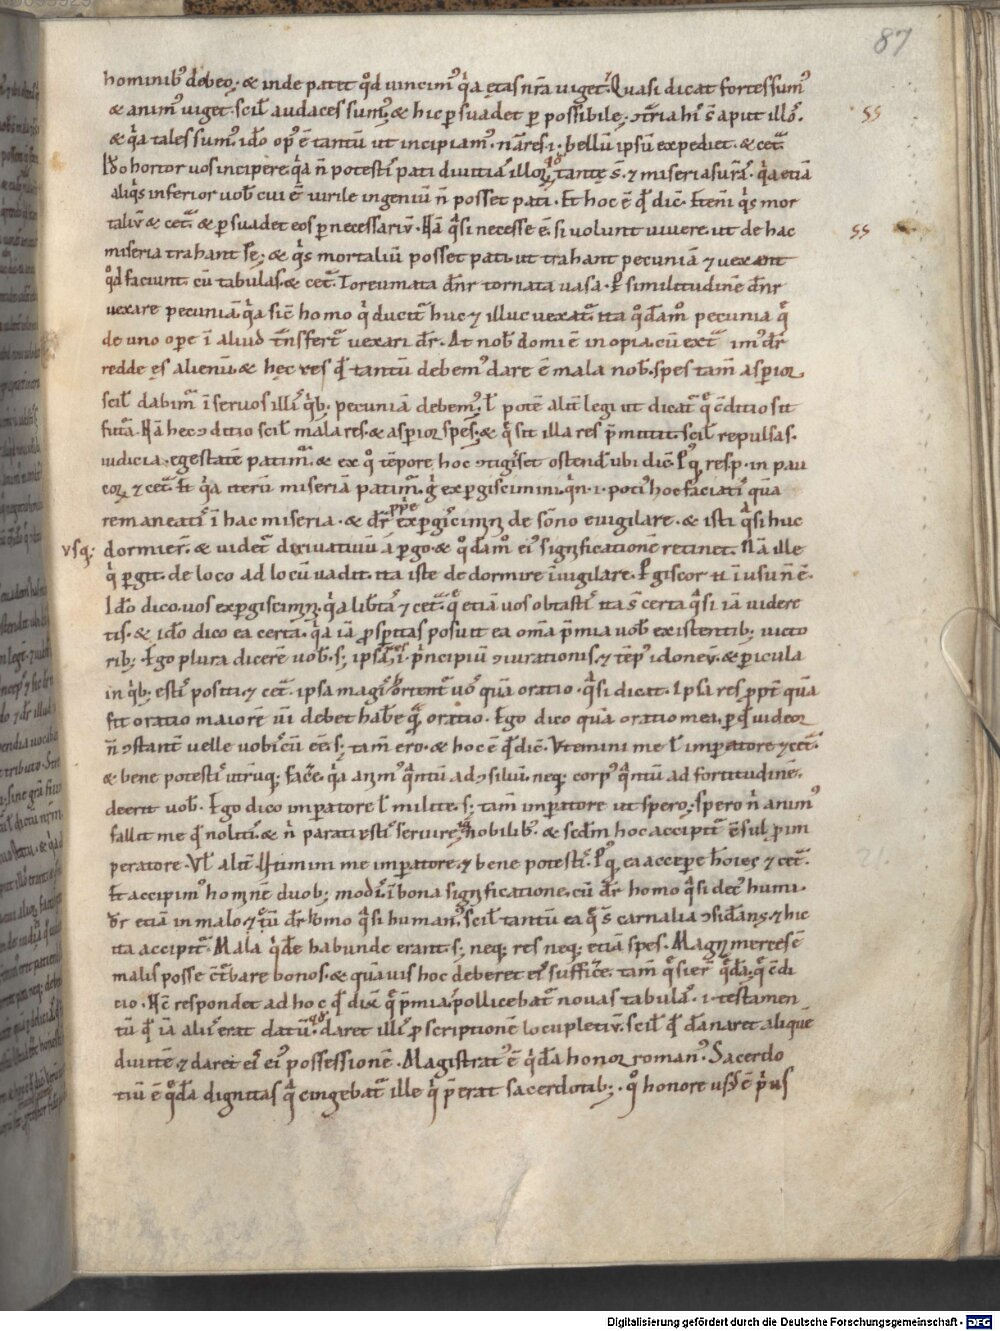 87
hominib; debeo; & inde patet qd uincim' qa ętas nr̄a uiget. Quasi dicat fortes sum'
& anim' uiget. scil' audaces sum'; & hic p suadet p possibile.
& qa tales sum', ido op' ē tantū ut incipiam'. nā res .i. bellū ipsū expediet. & cet̄.
hortor uos incipere. qa n̄ potestis pati diuitiā illoꝝ, tantę s. & miseria surā. qa etiā
aliqs inferior uob cui ēē uirile ingeniū n̄ posset pati. Et hoc ē qd dic̄. Eteni qs mor
taliū & cet̄. & p suadet eos p necessariū. Nā qsi necesse ē. si uolunt uiuere. ut de hac
miseria trahant se; & qs mortaliū posset pati ut trahant pecuniā & uexent
qd faciunt. cū tabulas. & cet̄. Toreumata dn̄r tornata uasa. P similitudinē dn̄r
uexare pecuniā. qa sic homo q ducit huc & illuc uexat. ita qdam pecunia q
de uno ope ī aliud tn̄sfert uexari dr̄. At nob domi ē inopia. cū ext̄
redde ęs alienū. & hęc res qd tantū debem' dare ē mala nob. spes tam̄ asperior
scil' dabim ī seruos illis qb; pecuniā debem'. l' pot ē alit̄ legi ut dicat q cditio sit
futa. Nā hec ↄditio scil' mala res. & asperior spes. & q sit illa res p̄mittit. scil' repulsas.
iudicia. egestatē patim'. & ex q tempore hoc ↄtigisset ostend ubi dic̄. Pq resp. in pau
coꝝ & cet̄. Et qa iterū miseriā patim' g expergiscimini. qn .i. poti' hoc faciatis quā
remaneatis ī hac miseria. & dr̄ ppe expgiscimini de sōno euigilare. & isti qsi huc
vsq; dormier̄. & uidet deriuatiuū a pergo. & qdam ei' significationē retinet. Nā ille
q pgit. de loco ad locū uadit. ita iste de dormire ī uigilare. Pgiscor ti ī usu n̄ ē.
Ido dico. uos expergiscimini. qa libtas & cet̄. q etiā uos obtastis ita s̄ certa qsi iā uidere
tis. & ido dico ea certa. qa iā prosperitas posuit ea om̄a p̄mia uob existentib; uicto
rib;. Ego plura dicerē uob. s; ipsa res .i. principiū ↄiurationis. & temp' idoneū. & pericula
in qb; estis positi. & cet̄. ipsa magis ortent uos quā oratio. qsi dicat. Ipsa res ppt quā
fit oratio maiorē uim debet habere quā oratio. Ego dico quā oratio mea, p qd uideor
n̄ ↄstant̄ uelle uobiscū ēē. s; tam̄ ero. & hoc ē qd dic̄. Vtemini me l' imperatore & cet̄.
& bene potestis utrūq; facere. qa anim' qntū ad ↄsiliū. neq; corp' qntū ad fortitudinē,
deerit uob. Ego dico imperatore l' milite. s; tam̄ imperatore ut spero; spero n̄ anim'
fallit me qd nolitis. & n̄ parati estis seruire nobilib'. & scdm hoc accipit ēsul p im
peratore. Vl' alit̄. Utimini me imperatore. & bene potestis. Pq ea accepere hoīes & cet̄.
Et accipim' hominē duob; modis. ī bona significatione. cū dr̄ homo qsi de humi.
dr̄ etiā in malo. & tū dr̄ homo qsi human'. scil' tantū ea q s̄ carnalia ↄsidans. & hic
ita accipit. Mala qde habunde erant. s; neq; res neq; etiā spes. Magni merces ē
malis posse ct̄bare bonos. & quāuis hoc deberet eis sufficere. tam̄ qsier qda. q cdi
cio. Hc̄ respondet ad hoc qd dix. q p̄mia pollicebat nouas tabulas .i. testamen
tū qd iā alis erat datū. daret illis p scriptionē locupletiū. scil' qd dānaret aliquē
diuitē & daret eis ei' possessionē. Magistrat' ē qda honor roman'. Sacerdo
tiū ē qda dignitas q cingebat ille q p̄erat sacerdotab;. qo honore usus ē p̄us
ss
ss
Digitalisierung gefördert durch die Deutsche Forschungsgemeinschaft - DFG